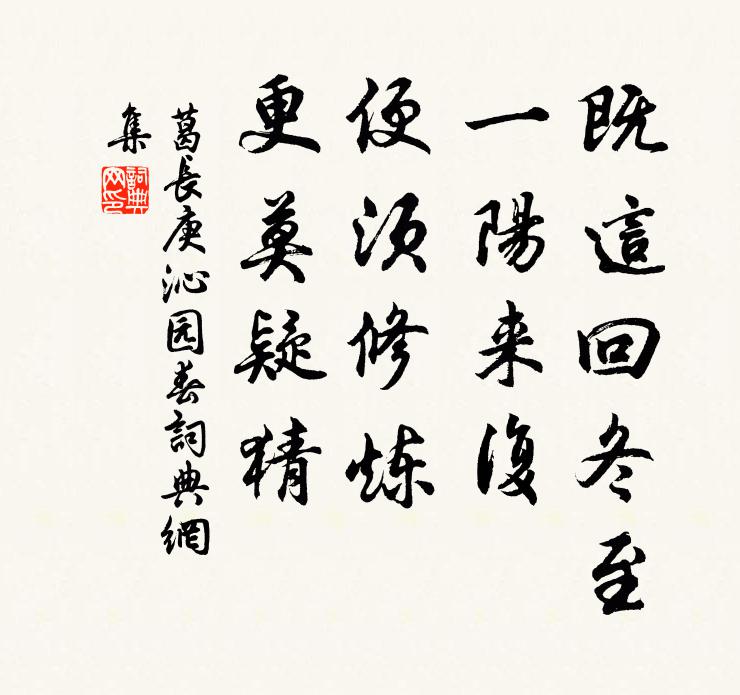 既這回冬至
一陽来復
便須修炼
更莫疑猜
葛長庚沁园春詞典網
集
詞典网印